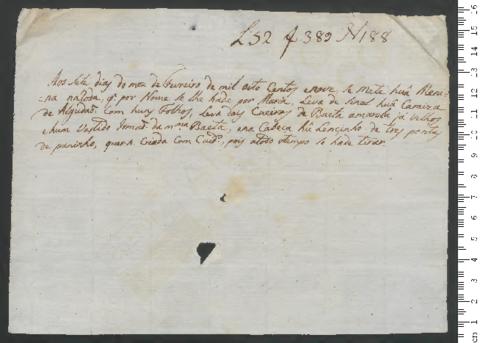 L52 f 389 N 188
Aos sete dias do mez de Fevreiro de mil oito Centos e nove, se mete huã Meni-
na na Roda, q. por Nome se lhe hade por Maria, Leva de Sinal huã Camiza
de Algudaõ Com huns Folhos, Leva dois Coeiros de Baeta amarela já Velhos
e hum Vestido da mma Baeta, e na Cabeca hũ Lencinho de tres pontas
de paninho, quera Criada Com Cuidº, pois a todo otempo se hade tirar.
cm 1 2 3 4 5 6 7 8 9 10 11 12 13 14 15 16